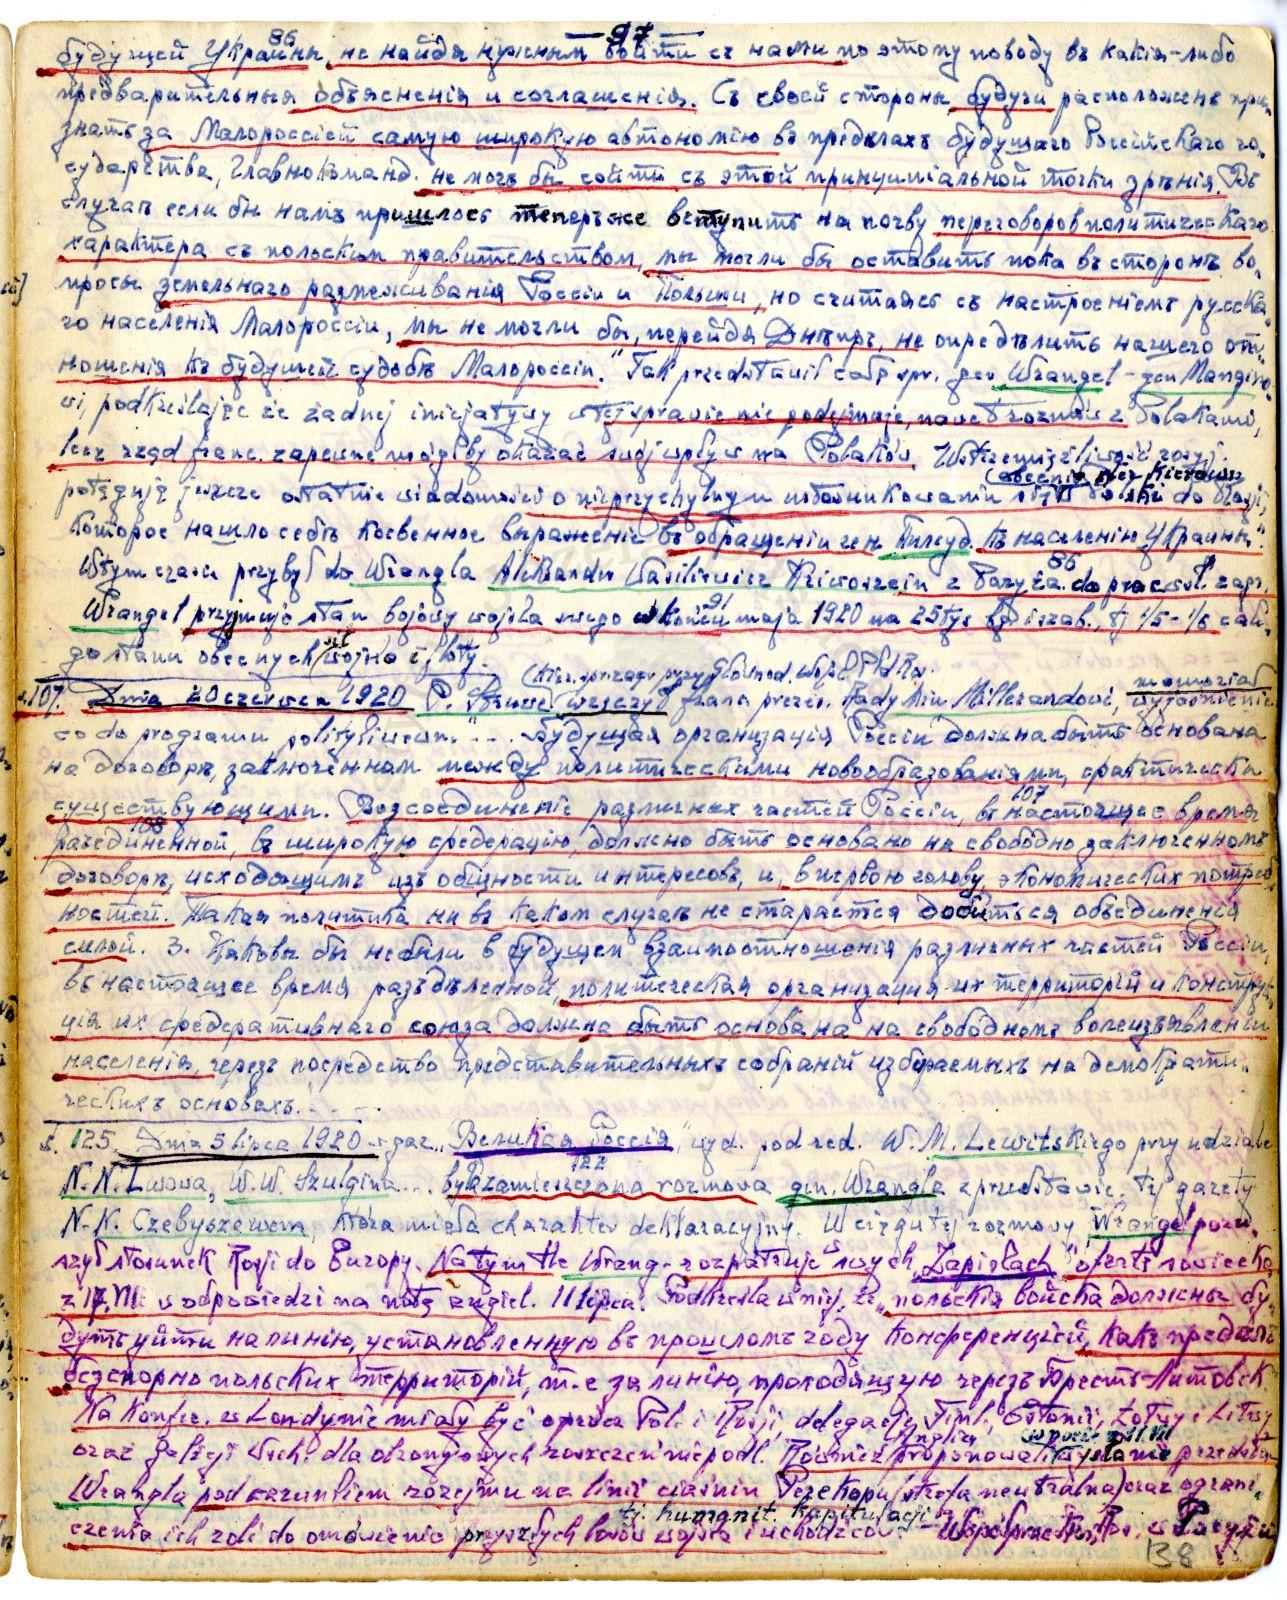 — 97 —
будущей Украины, 86 не найдя нужным войти съ нами по этому поводу въ какія-либо
предварительныя объясненія и соглашенія. Съ своей стороны будучи расположенъ приз-
знать за Малороссіей самую широкую автономію въ предѣлахъ будущаго Россійскаго го-
сударства, Главнокоманд. не могъ бы сойти съ этой принципіальной точки зрѣнія. Въ
случаѣ если бы намъ пришлось теперь же вступить на почву переговоров политическаго
характера съ польским правительством, мы могли бы оставить пока въ сторонѣ во-
просы земельнаго размеживанія Россіи и Польши, но считаясь съ настроеніемъ русска-
го населенія Малороссіи, мы не могли бы, перейдя Днѣпръ, не опредѣлить нашего отъ-
ношенія къ будущей судобѣ Малороссіи." Tak przedstawił całą spr. gen Wrangel – gen Mangino-
wi, podkreślając że żadnej inicjatywy w tej sprawie nie podejmuje, nawet rozmów z Polakami,
lecz rząd franc. zapewne mógłby okazać swój wpływ na Polaków. Wstrzemięźliwość rosyj.
potęguję jeszcze ostatnie wiadomości o nieprzychylnym ustosunkowaniu się Polski do Rosji,
которое нашло себѣ косвенное выраженіе въ обращеніи ген Пилсуд. къ населенію Украины".
W tym czasie przybył do Wrangla Aleksander Wasiliewicz Kriwoszein z Paryża 86 do prac
Wrangel przyjmuje stan bojowy wojska swego w końcu 91 maja 1920 na 25 tys tj 1/5 - 1/6 całe-
go stanu obecnych sił wojna i floty.
s. 107. Dnia 20 czerwca 1920 P. Struwe wręczył franc prezes. Rady Min Millerandowi, memoriał wyjaśnienie
co do programu polityki wewn. ... Будущая организація Россіи должна быть основана
на договорѣ, заключённом между политическими новообразованіями, фактически
существующими. Возсоединеніе различных частей Россіи, въ 107 настоящее время
разъединенной, 108 въ широкую федерацію, должно быть основано на свободно заключенномъ
договорѣ, исходящимъ изъ общности интересовъ, и, въ первою голову, экономических потреб-
ностей. Такая политика ни въ каком случаѣ не старается добиться объединенія
силой. 3. Каковы бы не были в будущем взаимоотношенія различных частей Россіи,
въ настоящее время разъдѣленной, политическая организация их территорій и конструк-
ція их федеративнаго союза должна быть основана на свободномъ волеизъявленіи
населенія, черезъ посредство представительныхъ собраній избираемыхъ на демократи-
ческихъ основахъ. . . .
s. 125. Dnia 5 lipca 1920 w gaz „Великая Россія", wyd. pod red. W. M. Lewitskiego przy udziale
N. N. Lwowa, W. W. Szulgina... 122 była zamieszczona rozmowa gen. Wrangla z przedstawic. tej gazety
N. N. Czebyszewem, która miała charakter deklaracyjny. W ciągu tej rozmowy Wrangel poru-
szył stosunek Rosji do Europy. Na tym tle Wrang. rozpatruje w swych „Zapiskach" ofertę sowiecką
z 17.VII w odpowiedzi na notę angiel. 11 lipca. Podkreśla w niej, że „польскія войска должны бу-
дутъ уйти на линію, установленную въ прошломъ году Конференціей, какъ предѣлъ
безспорно польских территорій, т.е за линію, проходящую черезъ Брестъ-Литовск.
Na konfer. w Londynie miały być oprócz Pol. i Rosji, delegacje Finl., Estonii, Łotwy i Litwy
oraz Galicji Wsch. dla obrony swych roszczeń niepodl. Również Anglicy proponowali w nocie z 11.VII wysłanie przedst.
Wrangla pod warunkiem rozejmu na linii cieśnin Perekopu (strefa neutralna) oraz ograni-
czenia ich roli do omówienia przyszłych losów wojska i uchodźców tj. humanit. kapitulacji. Współprac. w Paryżu
138